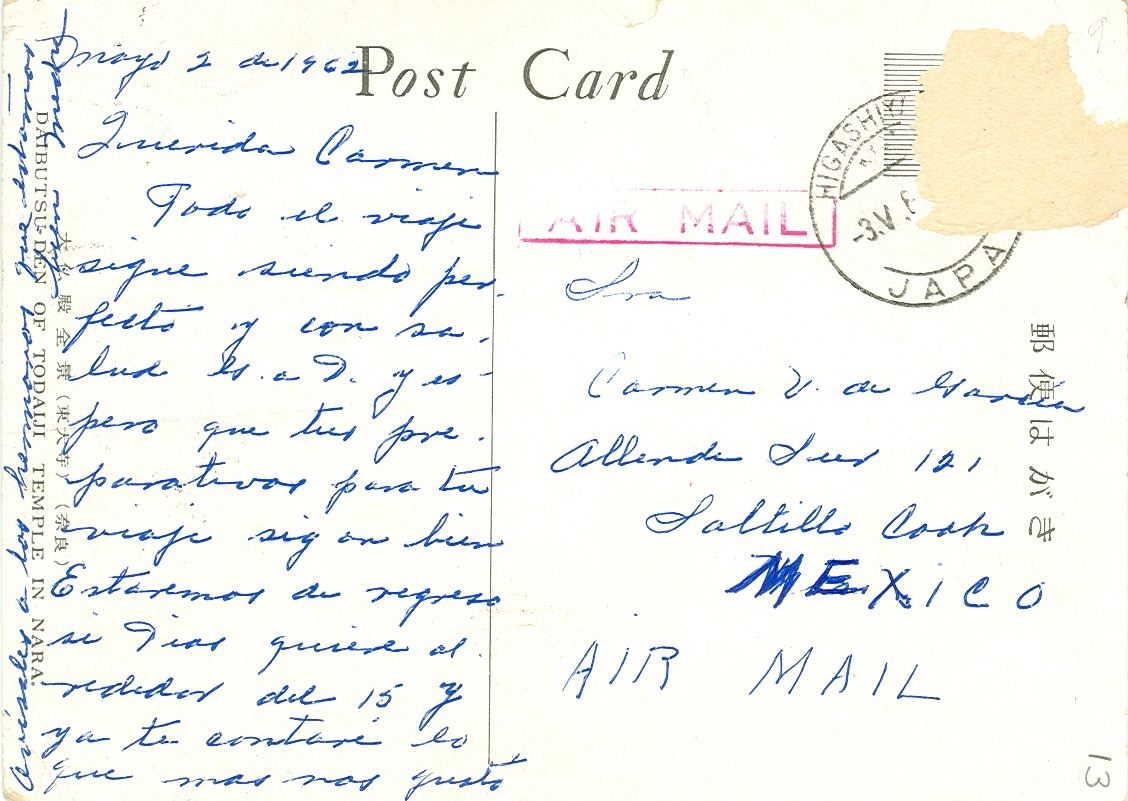 Post Card
Mayo 2 de 1962
Querida Carmen
Todo el viaje
sigue siendo per-
fecto y con sa-
lud Gs. a D. y es-
pero que tus pre-
parativos para tu
viaje sigan bien
Estaremos de regreso
si Dios quiere al-
rededor del 15 y
ya te contaré lo
que mas nos gustó
DAIBUTSU-DEN OF TODAIJI TEMPLE IN NARA.
大仏殿全景(東大寺)(奈良)
AIR MAIL
HIGASHI
-3.V.6
JAPA
郵便はがき
Sra
Carmen V. de Garcia
Allende Sur 121
Saltillo Coah
MEXICO
AIR MAIL
13